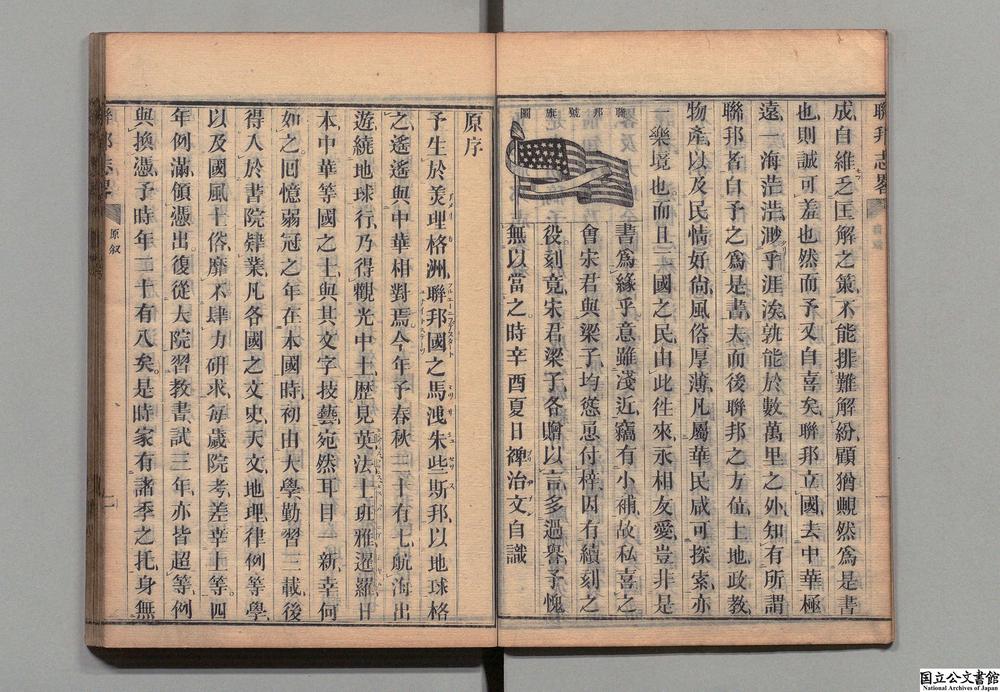 聯邦志畧
成自維乏匡解之策不能排難解紛顧猶覥然爲是書
也則誠可羞也然而予又自喜矣聯邦立國去中華極
遠一海茫茫渺乎涯涘孰能於數萬里之外知有所謂
聯邦者自予之爲是書夫而後聯邦之方位土地政教
物產以及民情好尙風俗厚薄凡屬華民咸可探索亦
一樂境也而且二國之民由此徃來永相友愛豈非是
聯邦號旗圖
書爲緣乎意雖淺近竊有小補故私喜之
會宋君與梁子均慫恿付梓因有續刻之
役刻竟宋君梁子各贈以言多過譽予愧
無以當之時辛酉夏日裨治文自識
原序
予生於美理格洲聯邦國之馬洩朱些斯邦以地球格
之遙遙與中華相對焉今年予春秋三十有七航海出
遊繞地球行乃得觀光中土歷見英法士班雅暹羅日
本中華等國之士與其文字技藝宛然耳目一新幸何
如之囘憶弱冠之年在本國時初由大學勤習三載後
得入於書院肄業凡各國之文史天文地理律例等學
以及國風士俗靡不肆力研求每歲院考差幸上等四
年例滿領憑出復從大院習教書試三年亦皆超等例
與換憑予時年二十有八矣是時家有諸季之托身無
聯邦志畧
原叙